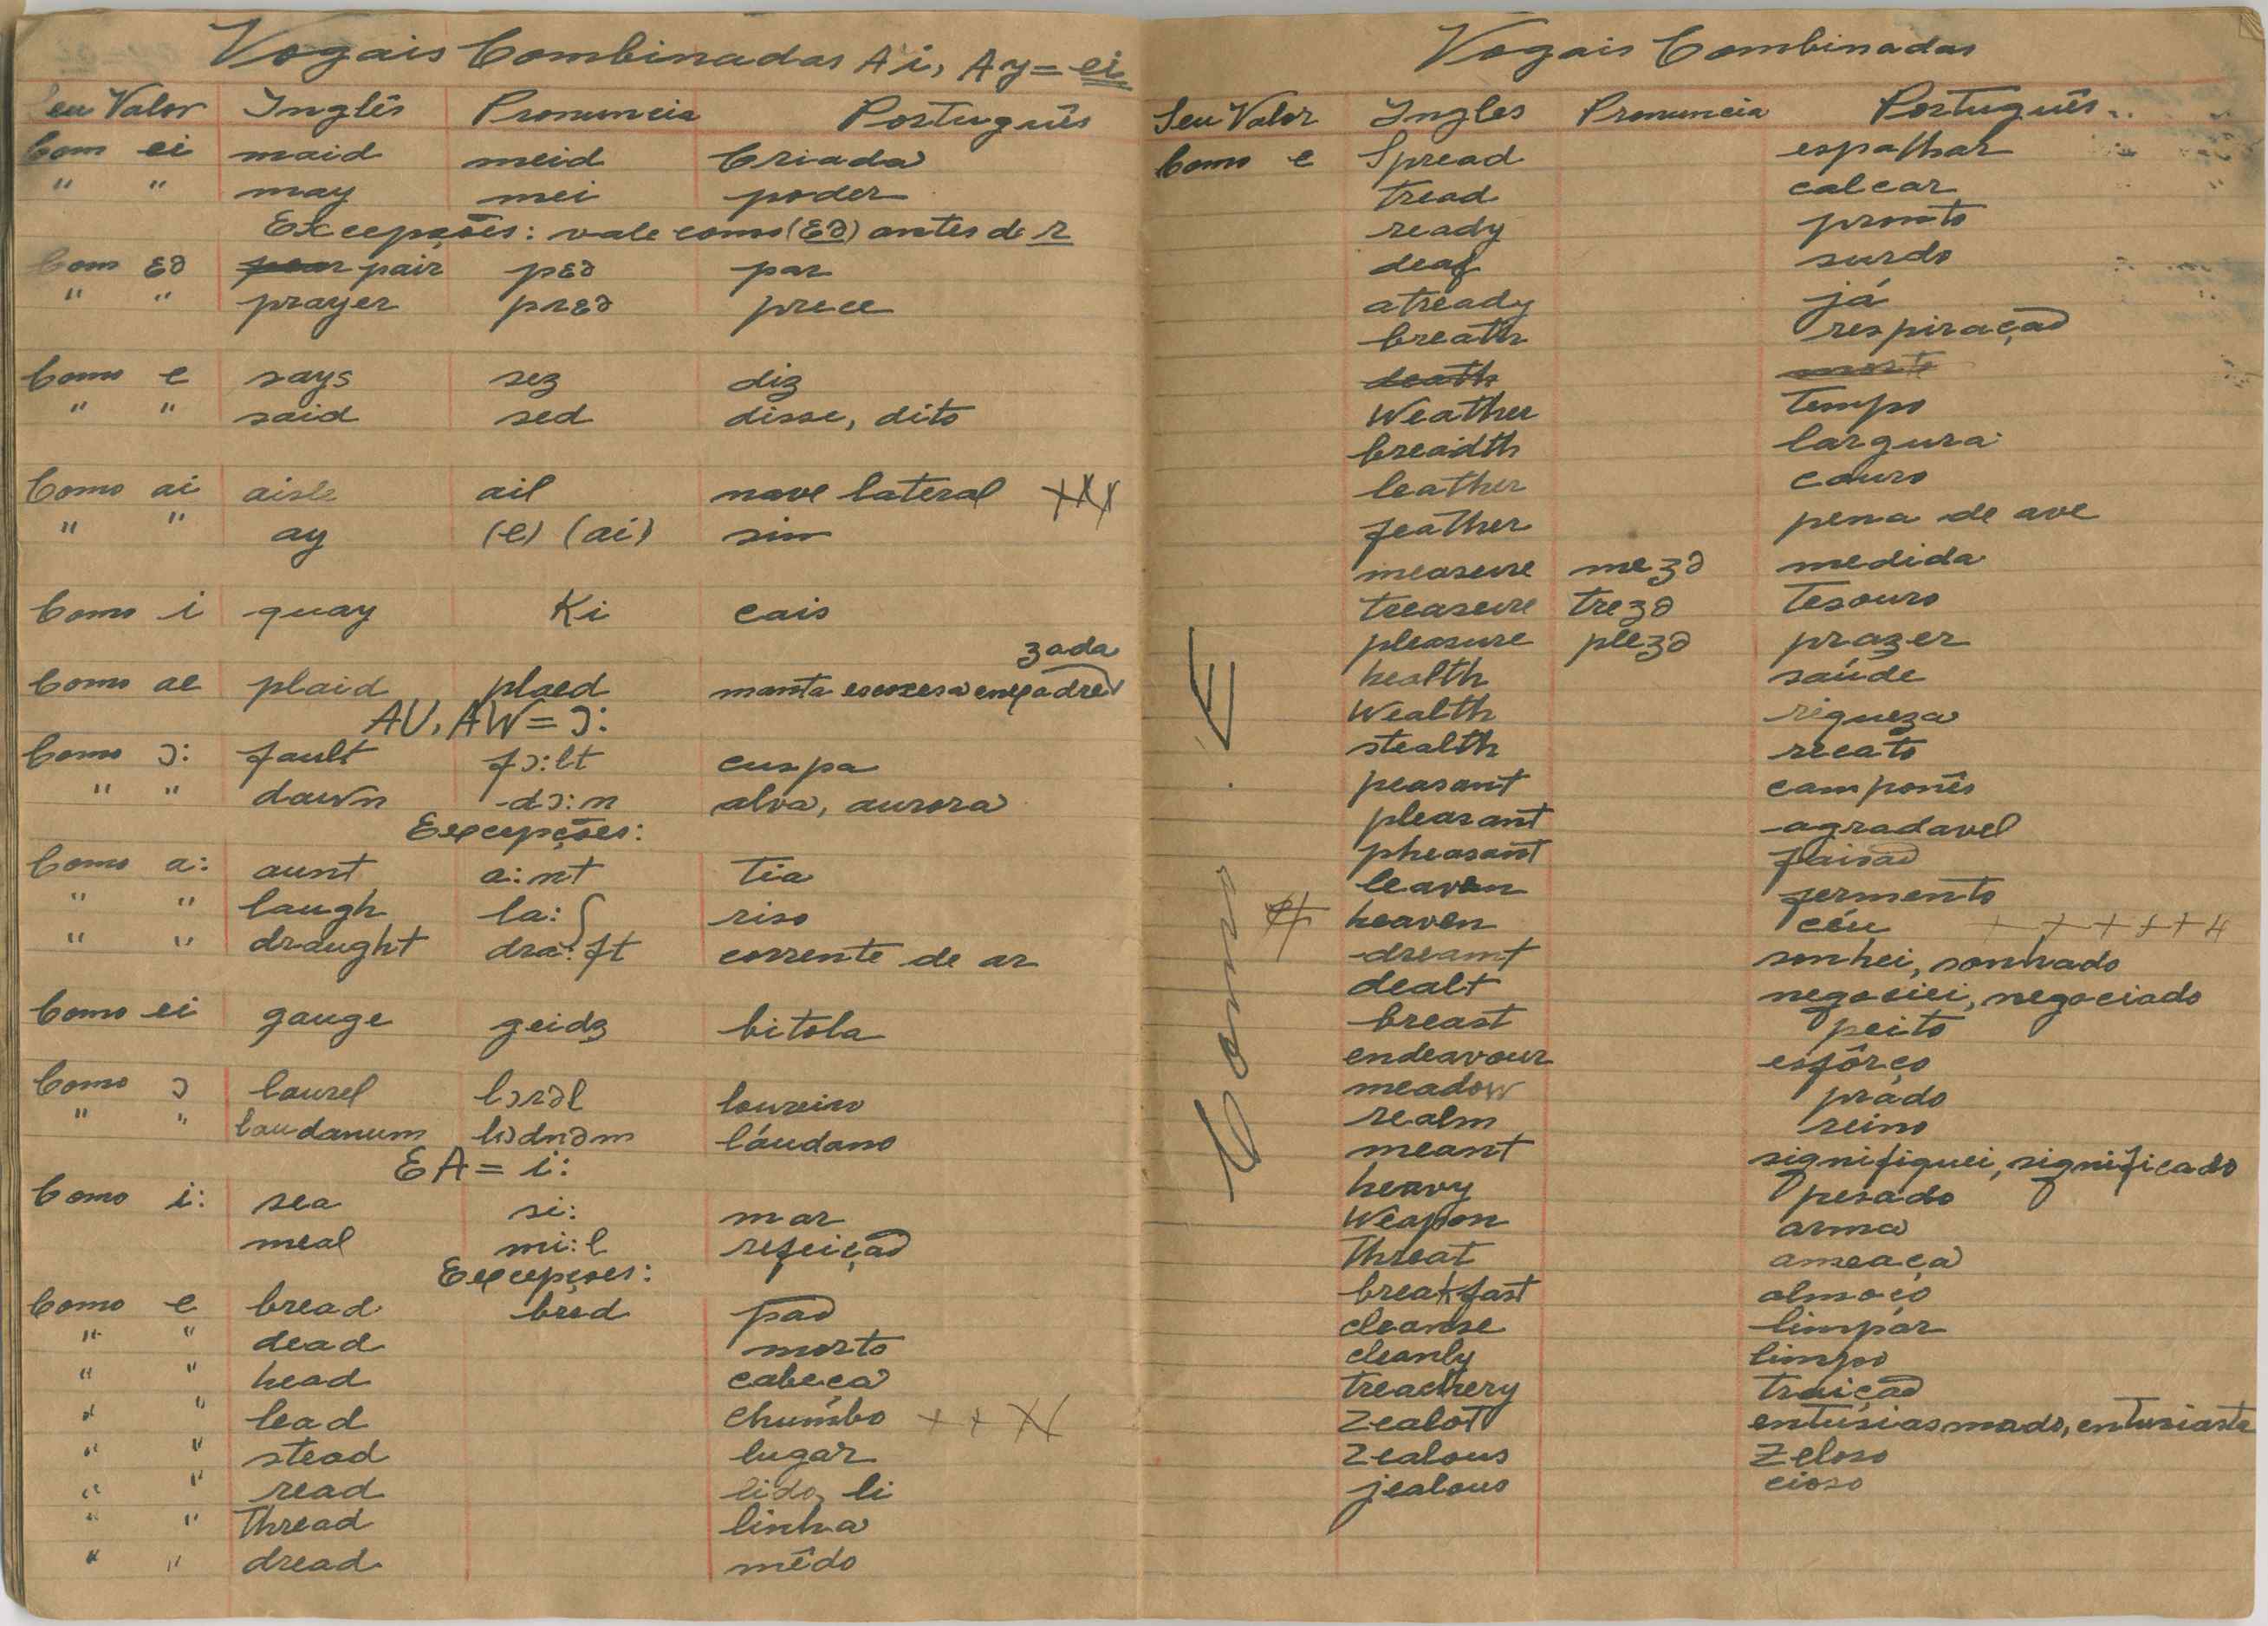 Vogais Combinadas Ai, Ay = ei
Seu Valor Inglês Pronuncia Português
Com ei maid meid Criada
" " may mei poder
Excepções: vale como (Ɛə) antes de r
Com Ɛə pair pƐə par
" " prayer prƐə prece
Como e says sez diz
" " said sed disse, dito
Como ai aisle ail nave lateral +XX
" " ay (e) (ai) sim
Como i quay Ki cais
zada
Como ae plaid plaed manta escocesa enxadre
AU, AW = ɔ:
Como ɔ: fault fɔ:lt cuspa
" " dawn dɔ:n alva, aurora
Excepções:
Como a: aunt a:nt tia
" " laugh la:f riso
" " draught dra:ft corrente de ar
Como ei gauge geidʒ bitola
Como ɔ laurel lɔrəl loureiro
" " laudanum lɔdnəm láudano
EA = i:
Como i: sea si: mar
meal mi:l refeição
Excepções:
Como e bread bred pão
" " dead morto
" " head cabeça
" " lead chumbo + + XX
" " stead lugar
" " read lido, li
" " Thread linha
" " dread mêdo
Vogais Combinadas
Seu Valor Ingles Pronuncia Português..
Como e Spread espalhar
tread calcar
ready pronto
deaf surdo
already já
breath respiração
death morte
Weather tempo
breadth largura
leather couro
feather pena de ave
measure meʒə medida
treasure treʒə Tesouro
pleasure pleʒə prazer
health saúde
Wealth riqueza
stealth recato
peasant camponês
pleasant agradavel
pheasant faisão
leaven fermento
heaven céu + + + + + +
dreamt sonhei, sonhado
dealt negociei, negociado
breast peito
endeavour esfôrço
meadow prado
realm reino
meant signifiquei, significado
heavy pesado
Weapon arma
Threat ameaça
breakfast almoço
cleanse limpar
cleanly limpo
treachery traição
Zealot entusiasmado, entusiasta
Zealous Zeloso
jealous cioso
Como . E